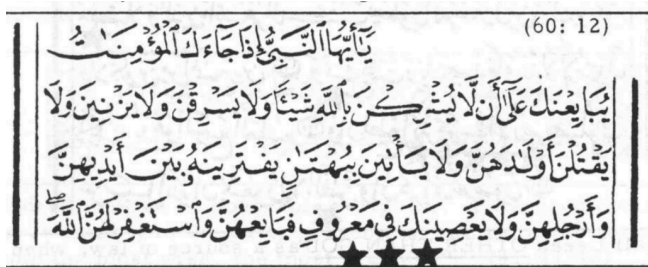 (60: 12)
يَٰٓأَيُّهَا ٱلنَّبِىُّ إِذَا جَآءَكَ ٱلْمُؤْمِنَٰتُ
يُبَايِعْنَكَ عَلَىٰٓ أَن لَّا يُشْرِكْنَ بِٱللَّهِ شَيْـًٔا وَلَا يَسْرِقْنَ وَلَا يَزْنِينَ وَلَا
يَقْتُلْنَ أَوْلَٰدَهُنَّ وَلَا يَأْتِينَ بِبُهْتَٰنٍ يَفْتَرِينَهُۥ بَيْنَ أَيْدِيهِنَّ
وَأَرْجُلِهِنَّ وَلَا يَعْصِينَكَ فِى مَعْرُوفٍ فَبَايِعْهُنَّ وَٱسْتَغْفِرْ لَهُنَّ ٱللَّهَ ۖ